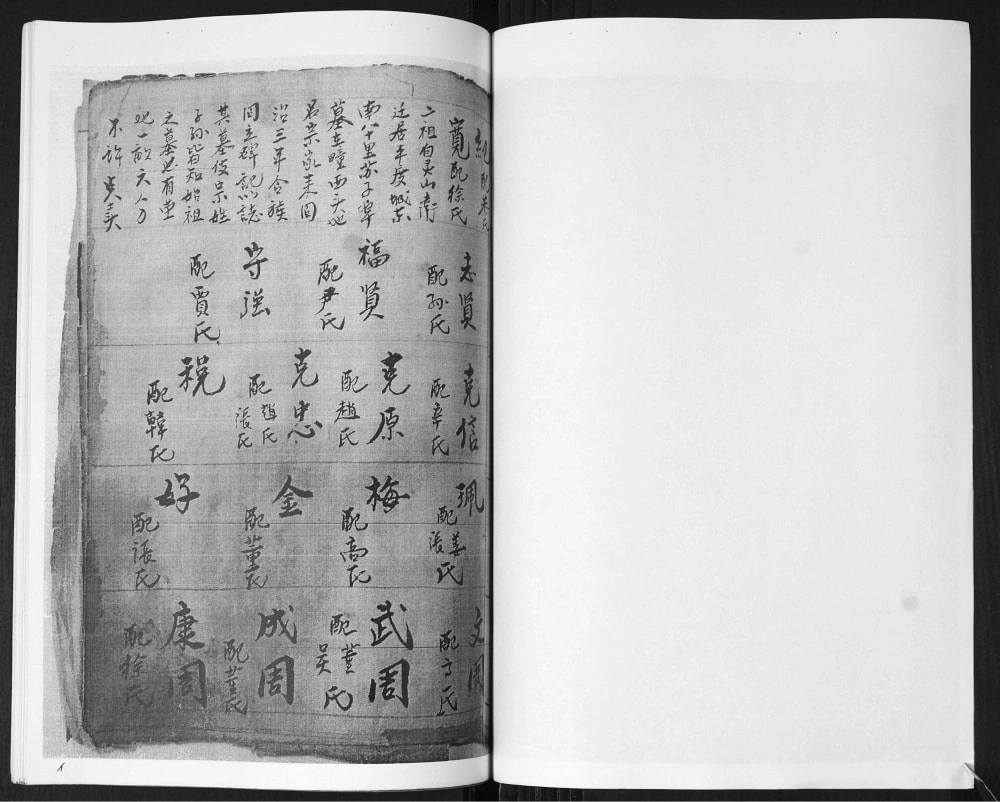 配朱氏
寬配徐氏
二祖自灵山衛
迁居平度城东
南八十里苏子埠
墓在疃西头地
名宗家末同
治三年合族
同立碑记以誌
其墓使宗姓
子孙皆知始祖
之墓也有茔
地一畝六人方
不许典卖
志賢
配孙氏
福賢
配尹氏
守强
配賈氏
克信
配辛氏
克原
配趙氏
克忠
配趙氏
張氏
税
配韓氏
珮
配姜氏
張
梅
配高氏
金
配董氏
好
配張氏
文周
配于氏
武周
配董
吴氏
成周
配董氏
康周
配徐氏